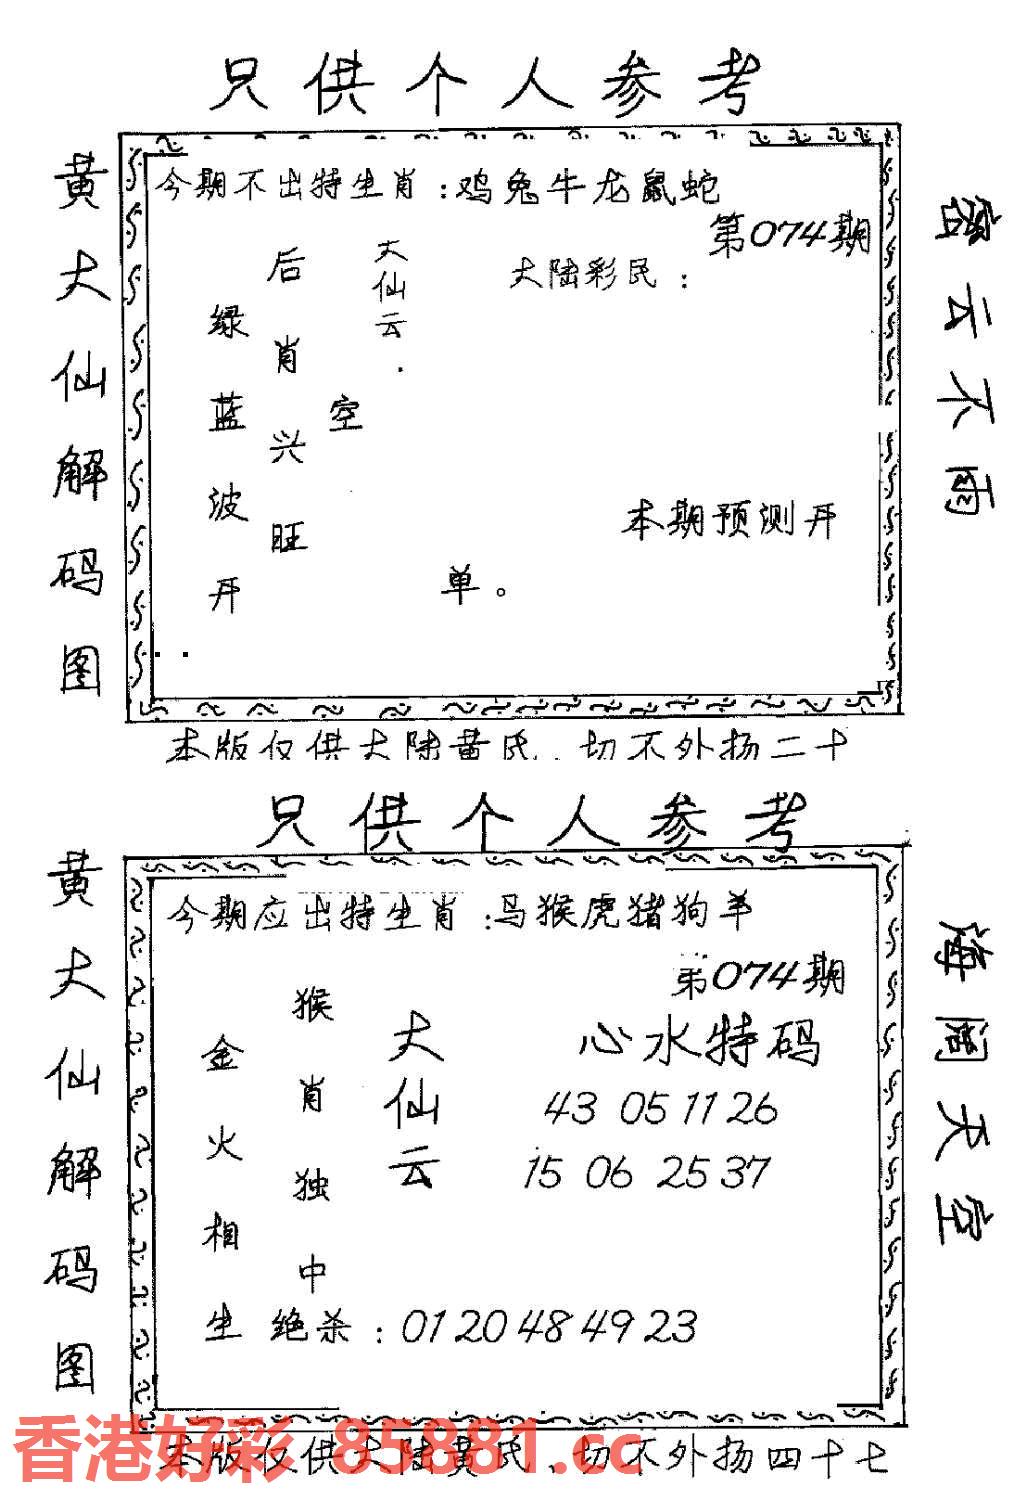 只供个人参考
黄大仙解码图
今期不出特生肖:鸡兔牛龙鼠蛇
第074期
大仙云.
大陆彩民:
后肖兴旺
空
绿蓝波开
本期预测开
单。
密云不雨
本版仅供大陆黄氏.切不外扬二十
只供个人参考
黄大仙解码图
今期应出特生肖:马猴虎猪狗羊
第074期
大仙云
猴肖独中
金火相生
心水特码
43 05 11 26
15 06 25 37
绝杀:01 20 48 49 23
海阔天空
本版仅供大陆黄氏、切不外扬四十七
香港好彩 85881.cc